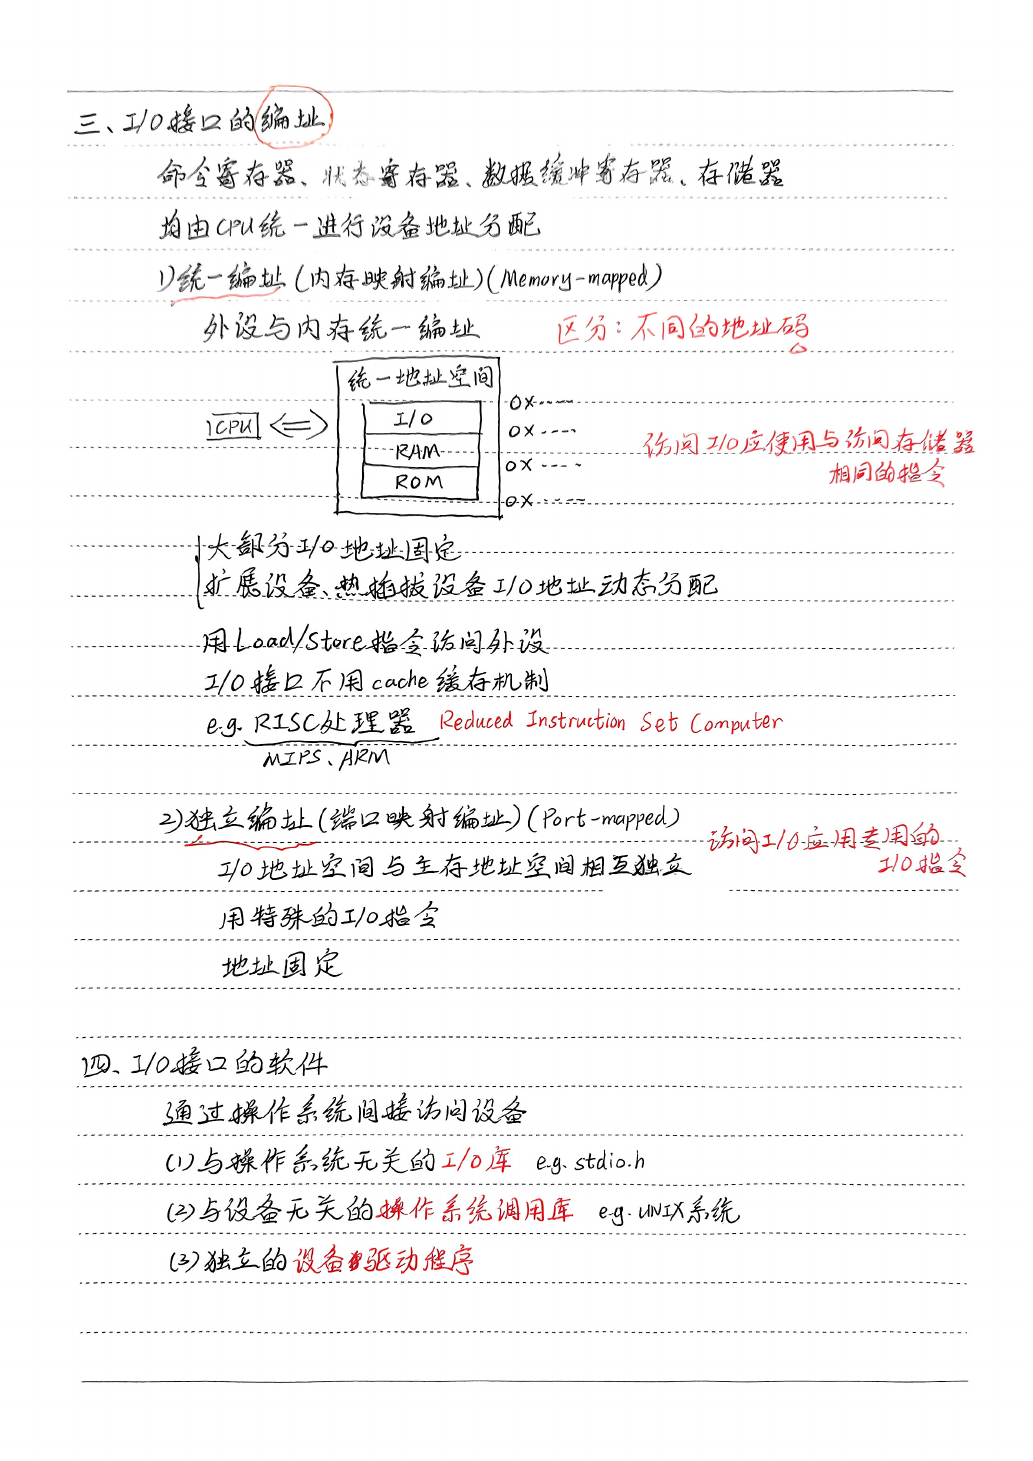 三、I/O接口的编址
命令寄存器、状态寄存器、数据缓冲寄存器、存储器
均由CPU统一进行设备地址分配
1)统一编址(内存映射编址)(Memory-mapped)
外设与内存统一编址 区分：不同的地址码
统一地址空间
CPU
I/O
RAM
ROM
0X-----
0X----
0X----
0X-----
访问I/O应使用与访问存储器
相同的指令
大部分I/O地址固定
扩展设备、热插拔设备I/O地址动态分配
用Load/Store指令访问外设
I/O接口不用cache缓存机制
e.g. RISC处理器 Reduced Instruction Set Computer
MIPS、ARM
2)独立编址(端口映射编址)(Port-mapped)
访问I/O应用专用的
I/O指令
I/O地址空间与主存地址空间相互独立
用特殊的I/O指令
地址固定
四、I/O接口的软件
通过操作系统间接访问设备
(1)与操作系统无关的I/O库 e.g. stdio.h
(2)与设备无关的操作系统调用库 e.g. UNIX系统
(3)独立的设备驱动程序